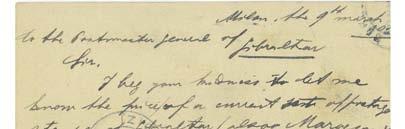 Milan, the 9th march
1902
to the Postmaster general of Gibraltar
Sir,
I beg your kindness to let me
know the price of a current set of postage
Gibraltar (also Maroc